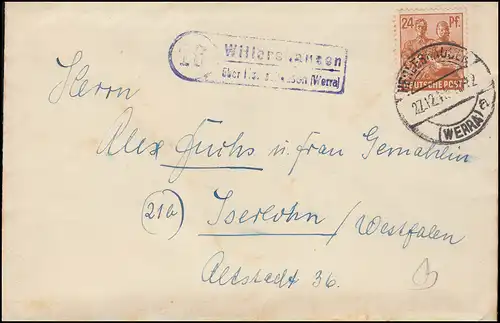 16 Willershausen
über (Werra)
24 Pf.
DEUTSCHE POST
(WERRA)
Herrn
Alex Fuchs u. Frau Gemahlin
21b Iserlohn / Westfalen
Altstadt 36.